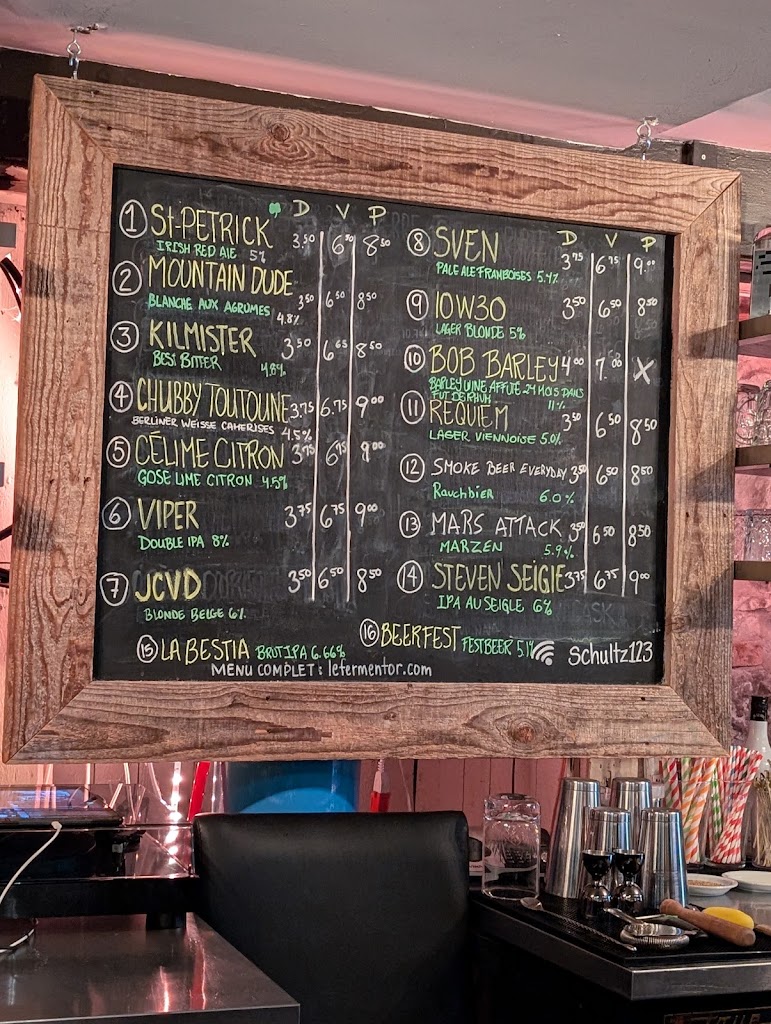 D V P
1 St-PETRICK 3.50 6.50 8.50
IRISH RED ALE 5%
2 MOUNTAIN DUDE
BLANCHE AUX AGRUMES 4.8% 3.50 6.50 8.50
3 KILMISTER 3.50 6.65 8.50
BEST BITTER 4.8%
4 CHUBBY TOUTOUNE 3.75 6.75 9.00
BERLINER WEISSE CAMERISES 4.5%
5 CÉLIME CITRON 3.75 6.75 9.00
GOSE LIME CITRON 4.5%
6 VIPER 3.75 6.75 9.00
DOUBLE IPA 8%
7 JCVD 3.50 6.50 8.50
BLONDE BELGE 6%
D V P
8 SVEN 3.75 6.75 9.00
PALE ALE FRAMBOISES 5.4%
9 10W30 3.50 6.50 8.50
LAGER BLONDE 5%
10 BOB BARLEY 4.00 7.00 X
BARLEY WINE AFFUTE 24 MOIS DANS
FUT DE RHUM 11%
11 REQUIEM 3.50 6.50 8.50
LAGER VIENNOISE 5.0%
12 SMOKE BEER EVERYDAY 3.50 6.50 8.50
Rauchbier 6.0%
13 MARS ATTACK 3.50 6.50 8.50
MARZEN 5.9%
14 STEVEN SEIGLE 3.75 6.75 9.00
IPA AU SEIGLE 6%
15 LA BESTIA BRUT IPA 6.66%
16 BEERFEST FESTBEER 5.1% Schultz123
MENU COMPLET : lefermentor.com